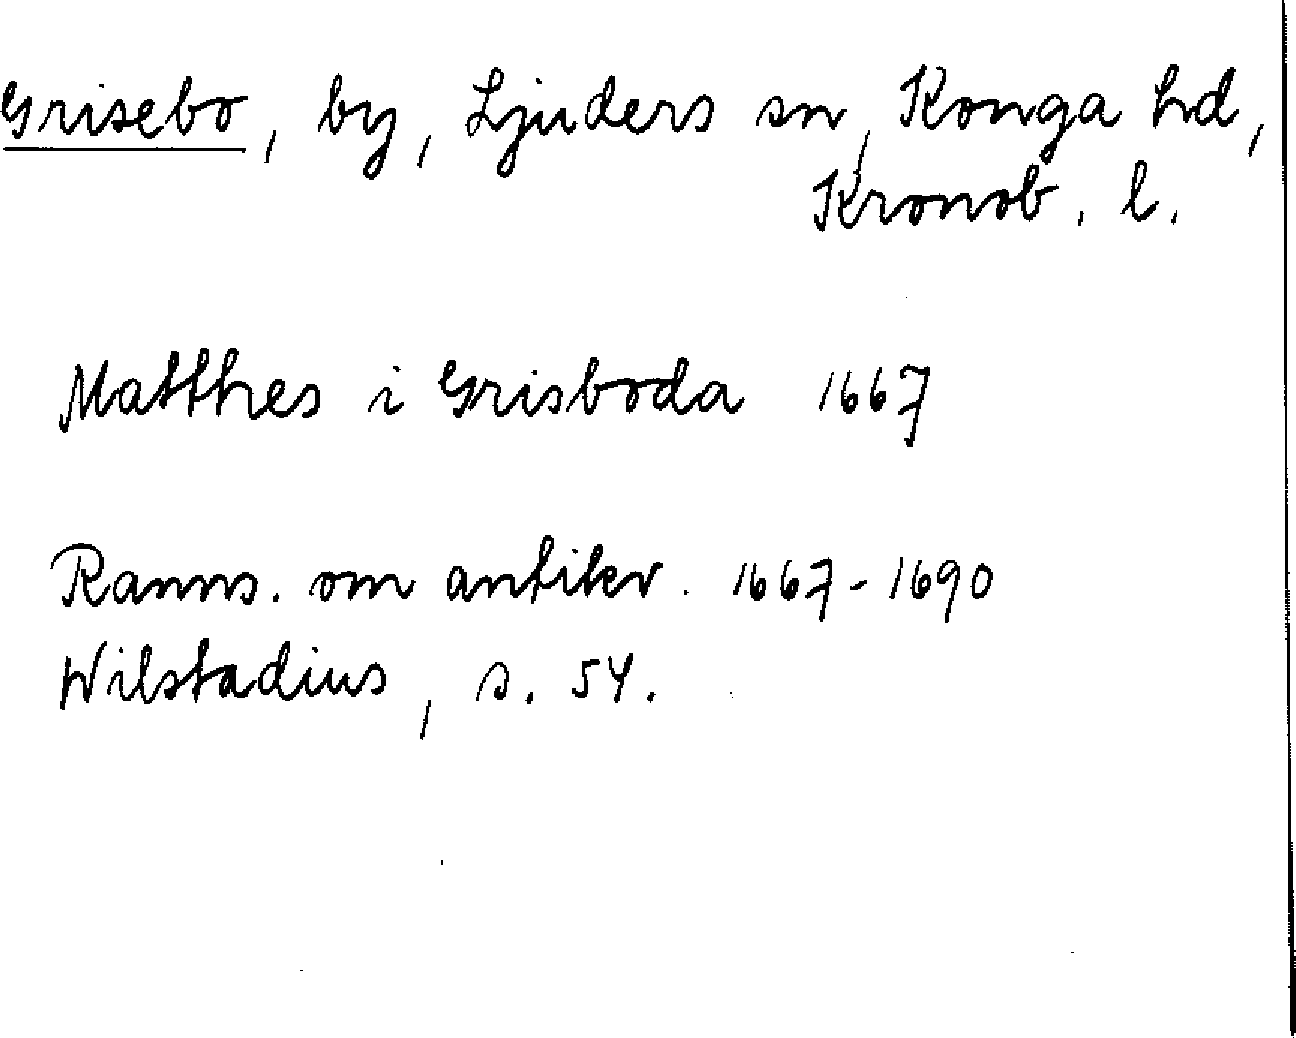 Grisebo, by, Ljuders sn, Konga hd,
Kronob. l.
Matthes i Grisboda 1667
Ranns. om antikv. 1667-1690
Wilstadius, s. 54.